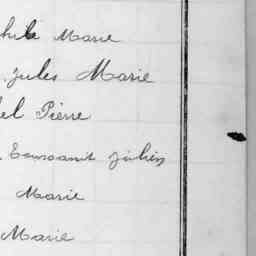 Marie
Jules Marie
el Pierre
Toussaint Julien
Marie
Marie